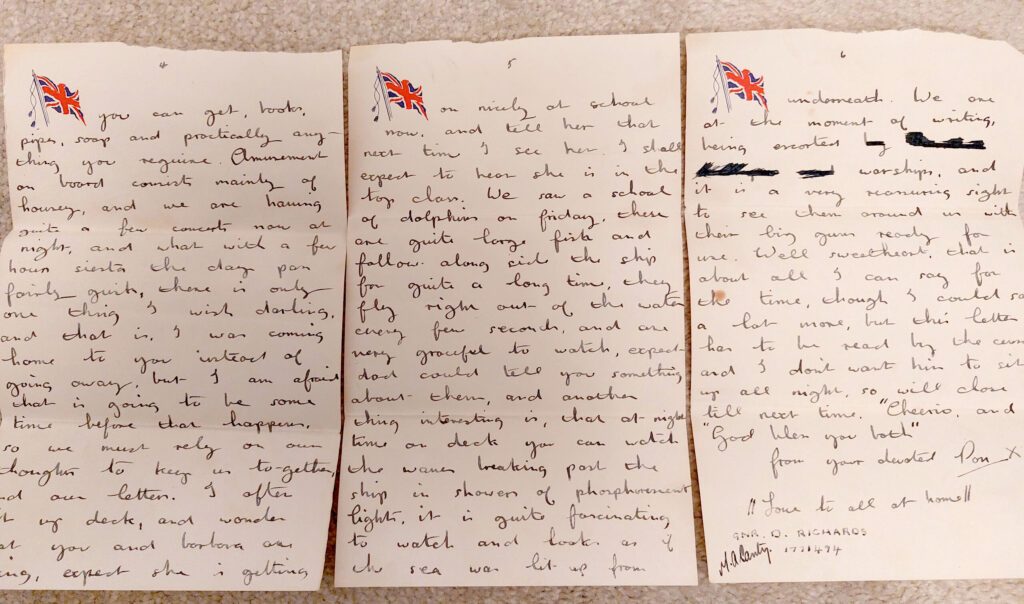 4
you can get, books,
pipes, soap and practically any-
thing you require. Amusement
on board consists mainly of
housey, and we are having
quite a few concerts now at
night, and what with a few
hours siesta the day pass
fairly quick, there is only
one thing I wish darling,
and that is, I was coming
home to you instead of
going away, but I am afraid
that is going to be some
time before that happens,
so we must rely on our
thoughts to keep us to-gether,
nd our letters. I often
it up deck, and wonder
at you and barbara are
ing, expect she is getting
5
on nicely at school
now, and tell her that
next time I see her I shall
expect to hear she is in the
top class. We saw a school
of dolphins on friday, there
are quite large fish and
follow along sid the ship
for quite a long time, they
fly right out of the water
every few seconds, and are
very graceful to watch, expect-
dad could tell you something
about them, and another
thing interesting is, that at night
time on deck you can watch
the waves breaking past the
ship in showers of phosphorescent
light, it is quite fascinating
to watch and looks as if
the sea was lit up from
6
underneath. We are
at the moment of writing,
being escorted by
warships, and
it is a very reassuring sight
to see them around us with
their big guns ready for
use. Well sweetheart, that is
about all I can say for
the time, though I could sa
a lot more, but this letter
has to be read by the cens
and I don't want him to sit
up all night, so will close
till next time. "Cheerio, and
"God bless you both"
from your devoted Don X
"Love to all at home"
GNR. D. RICHARDS
1771494